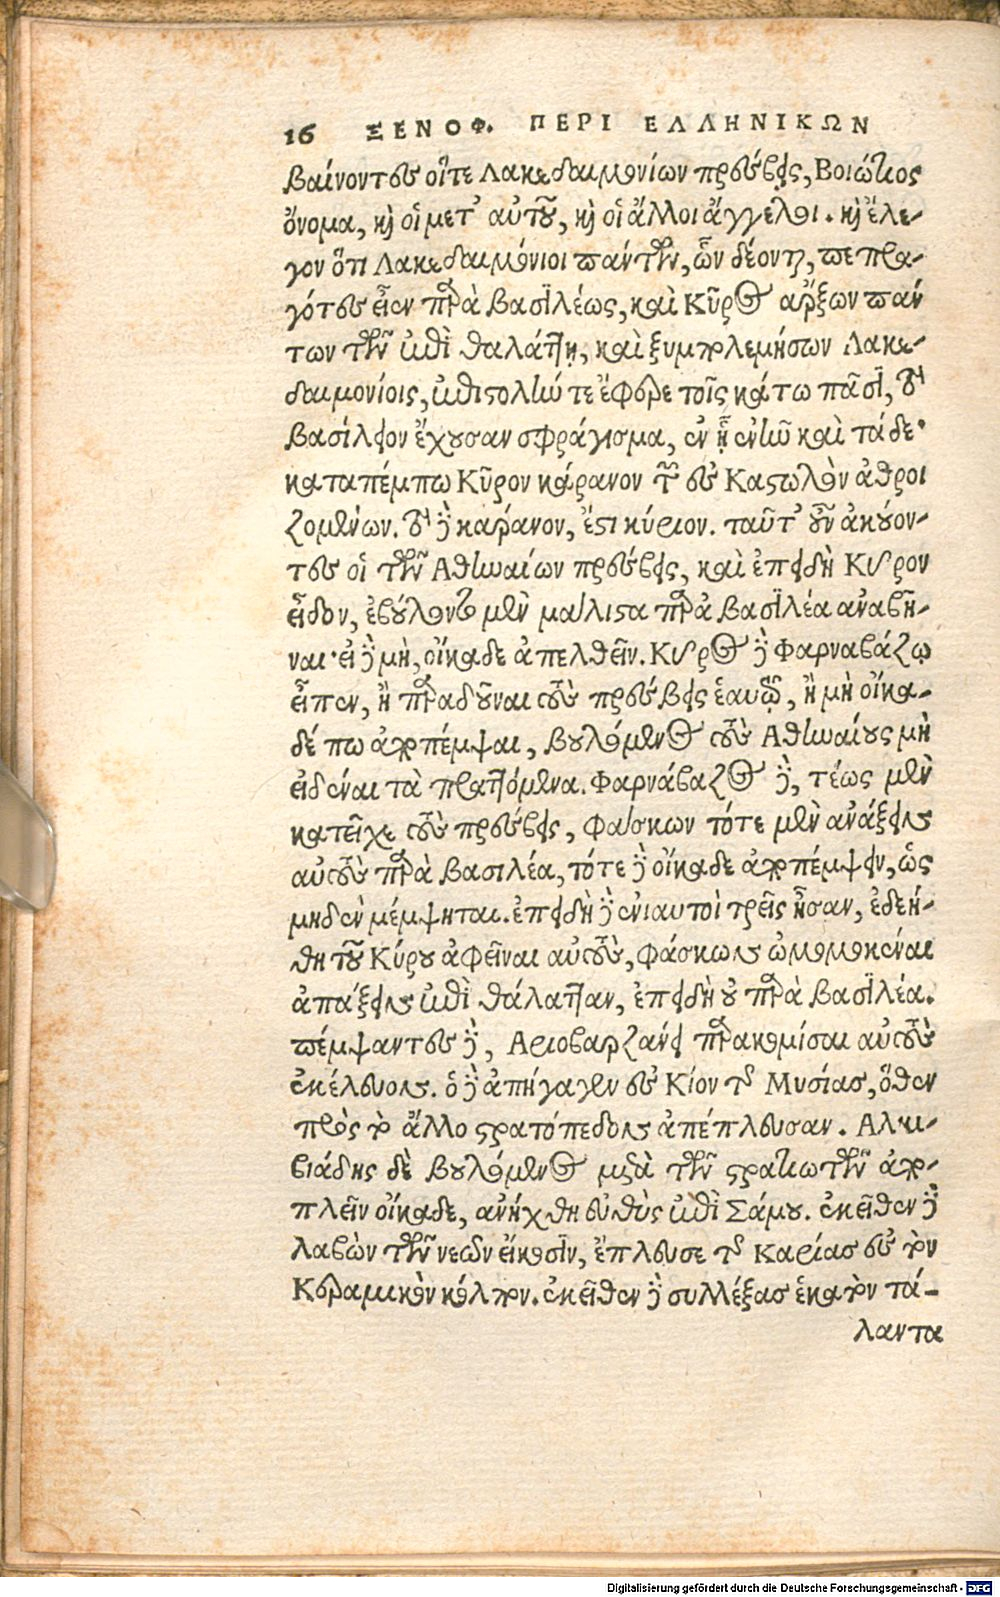 16 ΞΕΝΟΦ. ΠΕΡΙ ΕΛΛΗΝΙΚΩΝ
βαίνοντες οἵτε Λακεδαιμονίων πρσέβεις, Βοιώτιος
ὄνομα, καὶ οἱ μετ' αὐτοῦ, καὶ οἱ ἄλλοι ἄγγελοι. καὶ ἔλε-
γον ὅτι Λακεδαιμόνιοι πάντων, ὧν δέονται, πεπρα-
γότες εἶεν παρὰ βασιλέως, καὶ Κῦρος ἄρξων πάν
των τῶν ἐπὶ θαλάττῃ, καὶ ξυμπολεμήσων Λακε-
δαιμονίοις, ἐπιστολήν τε ἔφερε τοῖς κάτω πᾶσι, τὸ
βασίλειον ἔχουσαν σφράγισμα, ἐν ᾗ ἐνῆν καὶ τάδε·
καταπέμπω Κῦρον κάρανον τῶν εἰς Καστωλὸν ἀθροι
ζομένων. τὸ δὲ κάρανον, ἔστι κύριον. ταῦτ' οὖν ἀκούον-
τες οἱ τῶν Ἀθηναίων πρσέβεις, καὶ ἐπειδὴ Κῦρον
εἶδον, ἐβούλοντο μὲν μάλιστα παρὰ βασιλέα ἀναβῆ-
ναι· εἰ δὲ μὴ, οἴκαδε ἀπελθεῖν. Κῦρος δὲ Φαρναβάζῳ
εἶπεν, ἢ παραδοῦναι τοὺς πρσέβεις ἑαυτῷ, ἢ μὴ οἴκα-
δέ πω ἀποπέμψαι, βουλόμενος τοὺς Ἀθηναίους μὴ
εἰδέναι τὰ πραττόμενα. Φαρνάβαζος δὲ, τέως μὲν
κατεῖχε τοὺς πρσέβεις, φάσκων τότε μὲν ἀνάξειν
αὐτοὺς παρὰ βασιλέα, τότε δὲ οἴκαδε ἀποπέμψειν, ὡς
μηδὲν μέμψηται. ἐπειδὴ δὲ ἐνιαυτοὶ τρεῖς ἦσαν, ἐδεή-
θη τοῦ Κύρου ἀφεῖναι αὐτοὺς, φάσκων ὀμωμοκέναι
ἀπάξειν ἐπὶ θάλατταν, ἐπειδὴ οὐ παρὰ βασιλέα.
πέμψαντες δὲ, Ἀριοβαρζάνει παρακομίσαι αὐτοὺς
ἐκέλευον. ὁ δὲ ἀπήγαγεν εἰς Κίον τῆς Μυσίας, ὅθεν
πρὸς τὸ ἄλλο στρατόπεδον ἀπέπλευσαν. Ἀλκι-
βιάδης δὲ βουλόμενος μετὰ τῶν στρατιωτῶν ἀπο-
πλεῖν οἴκαδε, ἀνήχθη εὐθὺς ἐπὶ Σάμου. ἐκεῖθεν δὲ
λαβὼν τῶν νεῶν εἴκοσιν, ἔπλευσε τῆς Καρίας εἰς τὸν
Κεραμικὸν κόλπον. ἐκεῖθεν δὲ συλλέξας ἑκατὸν τά-
λαντα
Digitalisierung gefördert durch die Deutsche Forschungsgemeinschaft - DFG